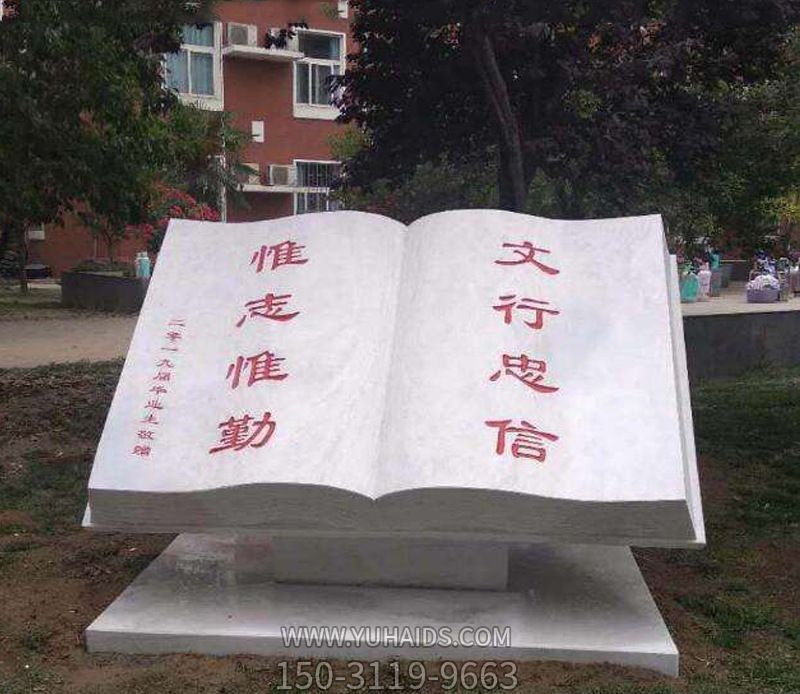 文行忠信
惟志惟勤
二零一九届毕业生敬赠
WWW.YUHAIDS.COM
150-3119-9663